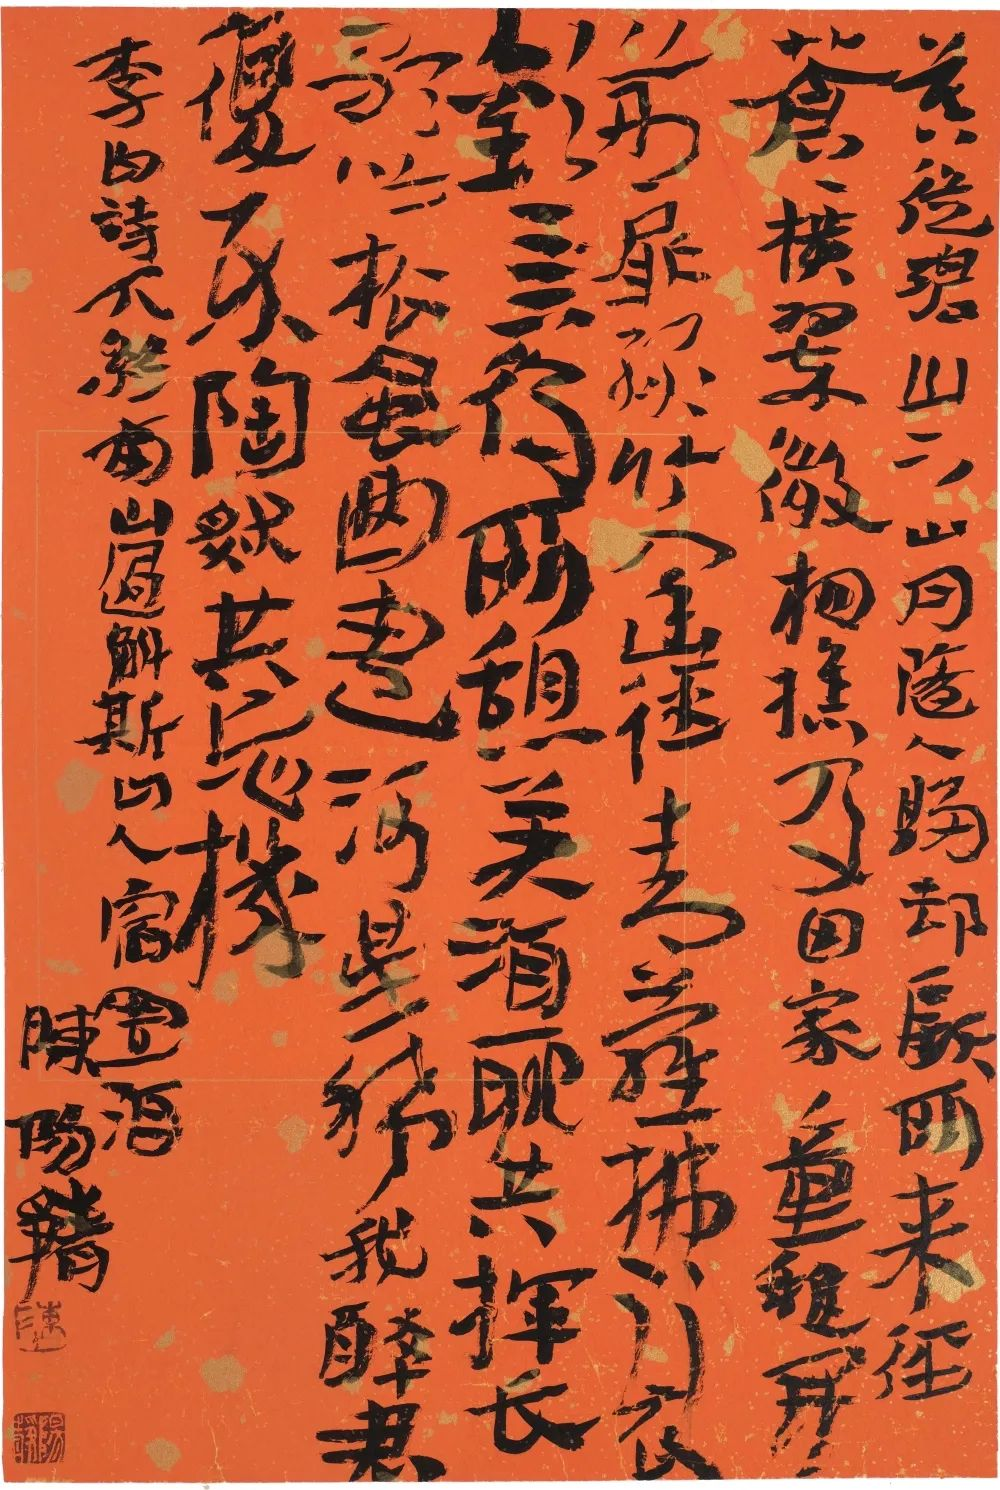 暮從碧山下山月隨人歸却顧所來徑
蒼〻橫翠微相攜及田家童稚開
荊扉綠竹入幽徑青蘿拂行衣
歡言得所憩美酒聊共揮長
歌吟松風曲盡河星稀我醉君
復樂陶然共忘機
李白詩下終南山過斛斯山人宿置酒
陳陽靜
陳
陽靜